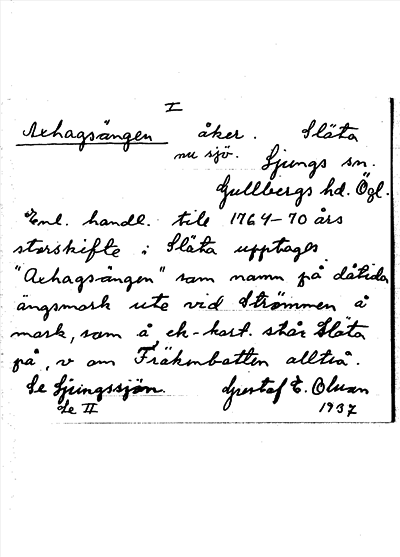 I
Axhagsängen åker. Släta
nu sjö. Ljungs sn.
Gullbergs hd. Ögl.
Enl. handl. till 1764-70 års
storskifte i Släta upptages
"Axhagsängen" som namn på dåtida
ängsmark ute vid Strömmen å
mark, som å ek-kart. står Släta
på, v om Fräkenbatten alltså.
Se Ljungssjön. Gustaf E. Olsson
Se II 1937